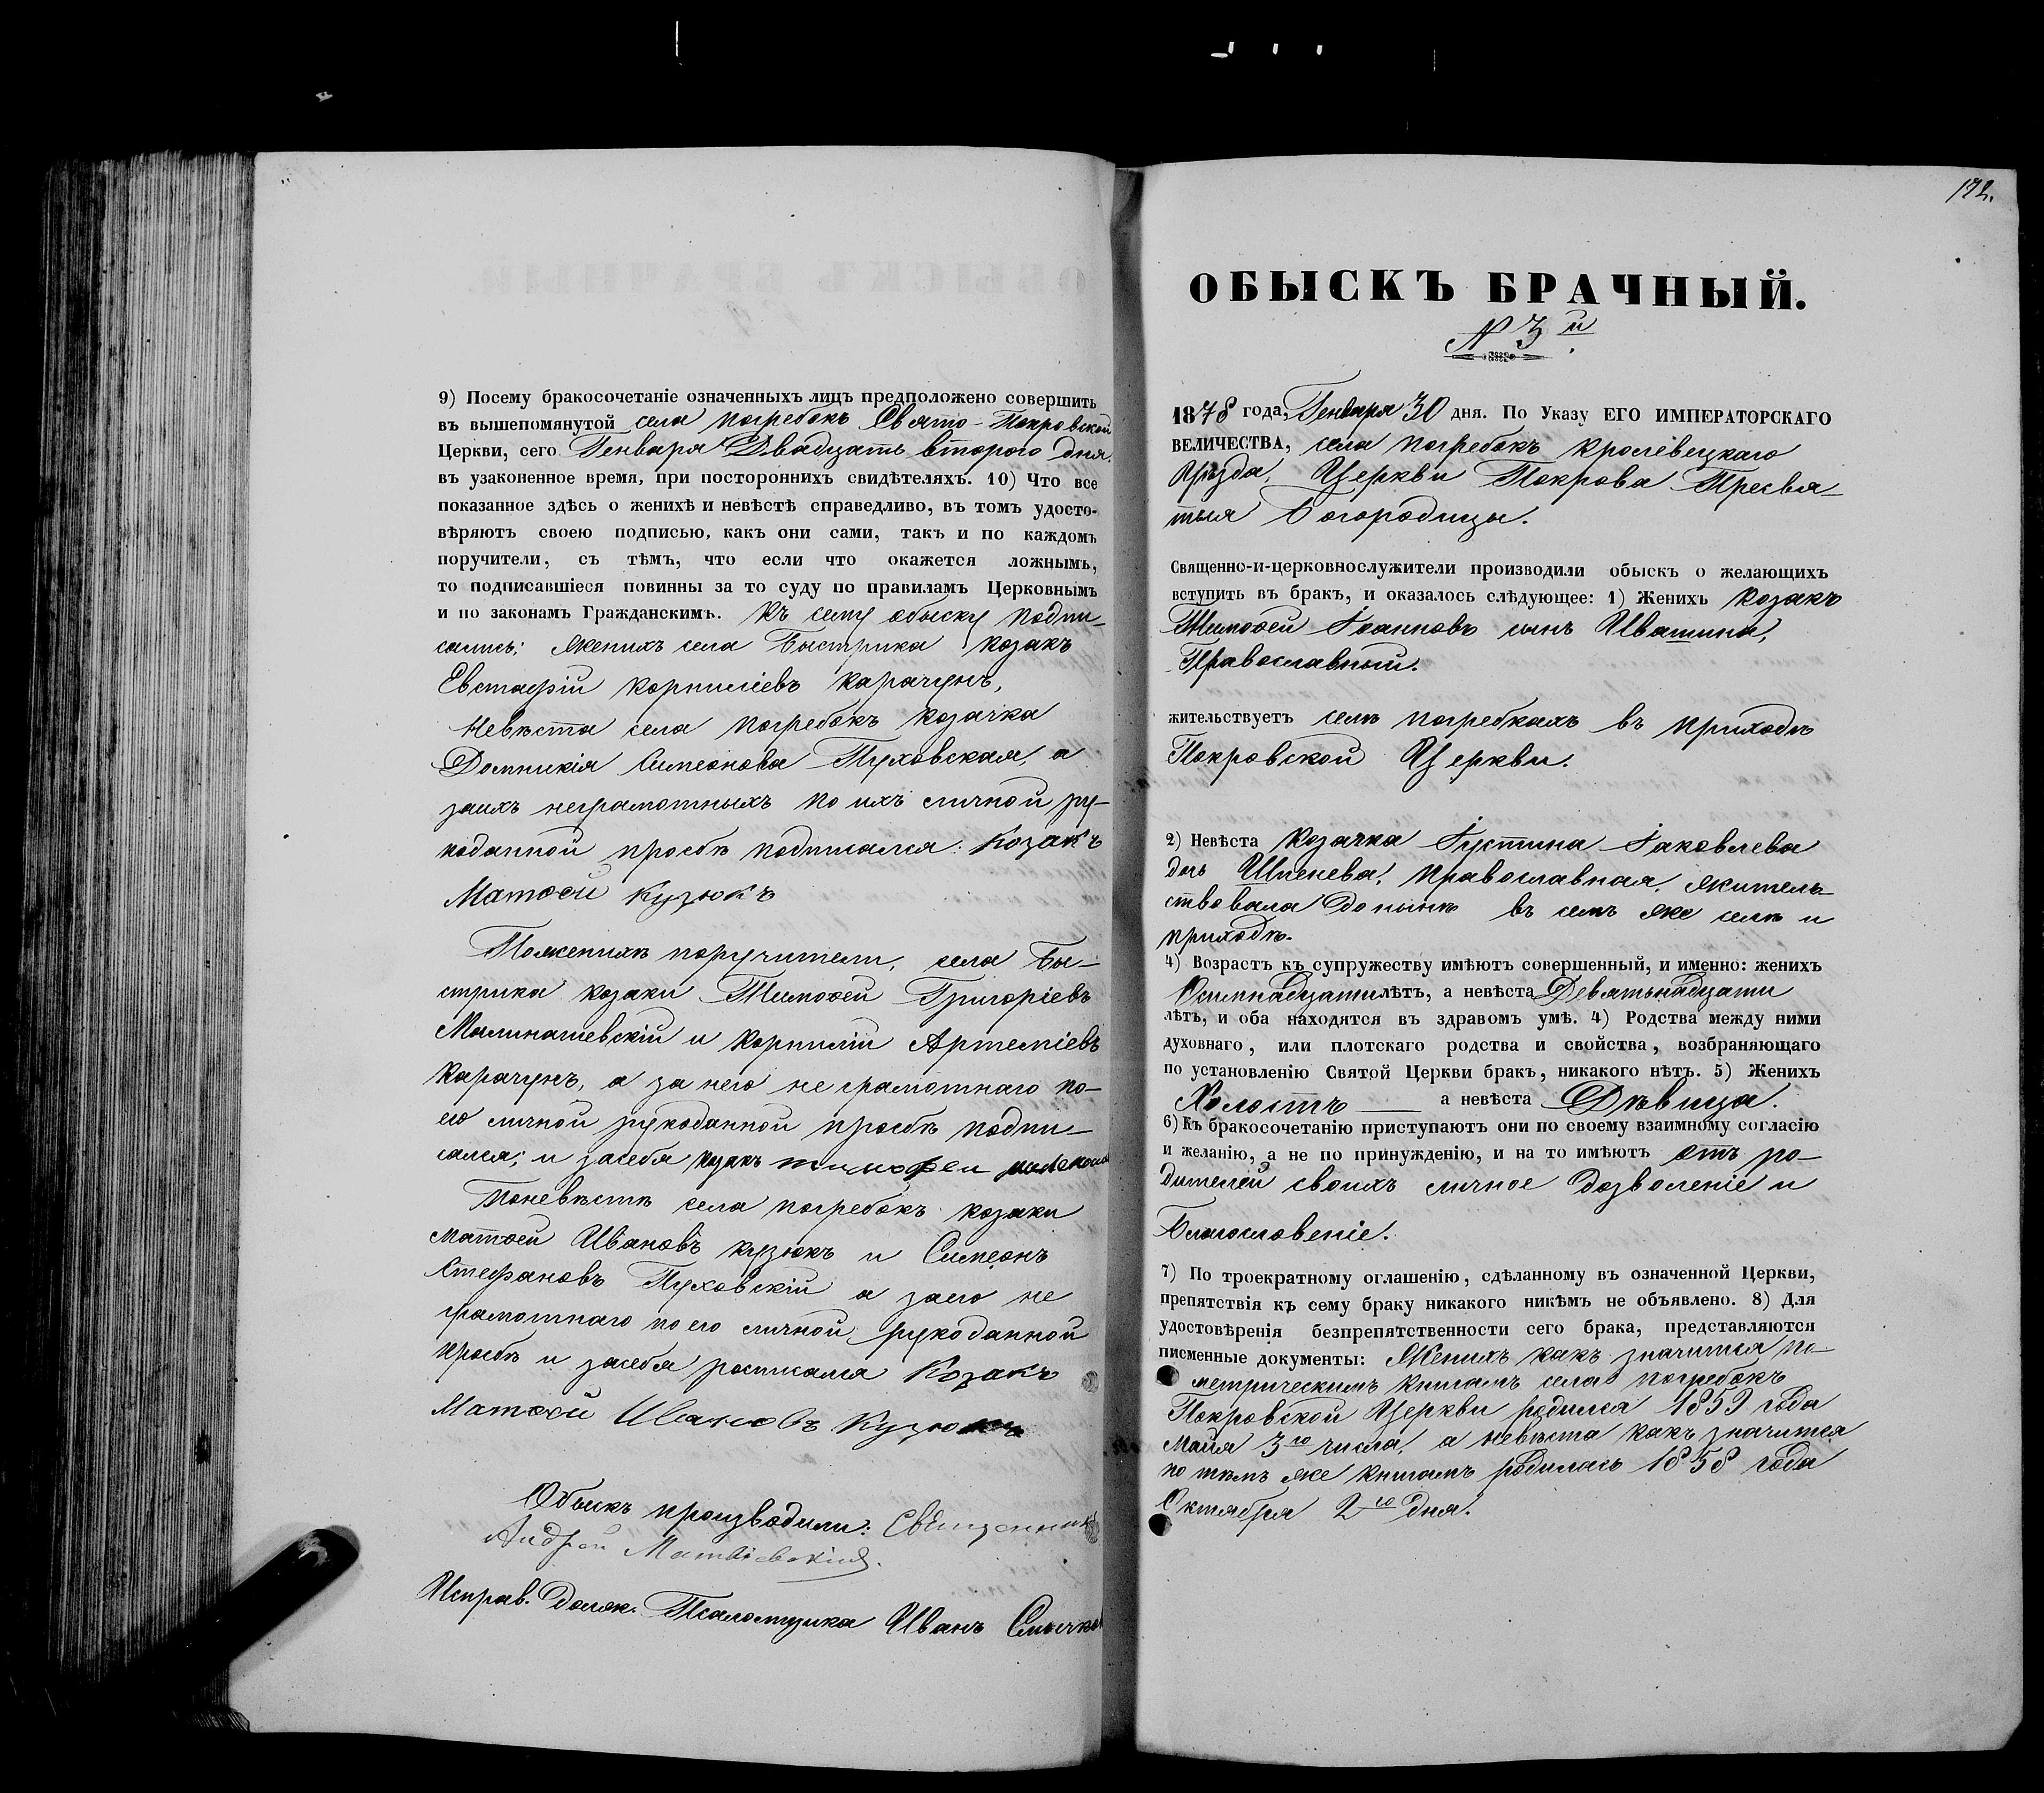 9) Посему бракосочетаніе означенныхъ лицъ предположено совершить
въ вышепомянутой села Погребокъ Свято-Покровской
Церкви, сего Генваря Двадцать втораго дня.
въ узаконенное время, при постороннихъ свидѣтеляхъ. 10) Что все
показанное здѣсь о женихѣ и невѣстѣ справедливо, въ томъ удосто-
вѣряютъ своею подписью, какъ они сами, такъ и по каждомъ
поручители, съ тѣмъ, что если что окажется ложнымъ,
то подписавшіеся повинны за то суду по правиламъ Церковнымъ
и по законамъ Гражданскимъ. Къ сему обыску подпи-
сались: женихъ села Быстрика козакъ
Евстафій Корниліевъ Карачунъ,
Невѣста села Погребокъ козачка
Домникія Симеонова Пуховская, а
заихъ неграмотныхъ по ихъ личной ру-
коданной просьбѣ подписался: Козакъ
Матѳей Кузюкъ
Поженихѣ поручители, села Бы-
стрика козаки Тимоѳей Григоріевъ
Малинашевскій и Корнилій Артеміевъ
Карачунъ, а за него не грамотнаго по-
его личной рукоданной просьбѣ подпи-
сался; и засебя козакъ тимофеи
Поневѣстѣ села Погребокъ козаки
Матѳей Ивановъ Кузюкъ и Симеонъ
Стефановъ Пуховскій а заего не
грамотнаго по его личной рукоданной
просьбѣ и засебя росписался Козакъ
Матѳей Ивановъ Кузюкъ
Обыскъ производили: Священникъ
Андрей Матвіевскій.
Исправ. долж. Псаломщика Иванъ
172.
ОБЫСКЪ БРАЧНЫЙ.
N 3й.
1878 года, Генваря 30 дня. По Указу ЕГО ИМПЕРАТОРСКАГО
ВЕЛИЧЕСТВА, села Погребокъ Кролевецкаго
Уѣзда, Церкви Покрова Пресвя-
тыя Богородицы.
Священно-и-церковнослужители производили обыскъ о желающихъ
вступить въ бракъ, и оказалось слѣдующее: 1) Женихъ козакъ
Тимоѳей Іоанновъ сынъ Ивашина,
Православный.
жительствуетъ селѣ Погребкахъ въ приходѣ
Покровской Церкви.
2) Невѣста козачка Іустина Іаковлева
дочь Шпенева, православная, житель-
ствовала донынѣ въ семъ же селѣ и
приходѣ.
4) Возрастъ къ супружеству имѣютъ совершенный, и именно: женихъ
Осимнадцати лѣтъ, а невѣста Девятьнадцати
лѣтъ, и оба находятся въ здравомъ умѣ. 4) Родства между ними
духовнаго, или плотскаго родства и свойства, возбраняющаго
по установленію Святой Церкви бракъ, никакого нѣтъ. 5) Женихъ
Холостъ — а невѣста Дѣвица.
6) Къ бракосочетанію приступаютъ они по своему взаимному согласію
и желанію, а не по принужденію, и на то имѣютъ отъ ро-
дителей своихъ личное дозволеніе и
Благословеніе.
7) По троекратному оглашенію, сдѣланному въ означенной Церкви,
препятствія къ сему браку никакого никѣмъ не объявлено. 8) Для
удостовѣренія безпрепятственности сего брака, представляются
писменные документы: Женихъ какъ значится по-
метрическимъ книгамъ села Погребокъ
Покровской Церкви родился 1859 года
Маія 3го числа, а невѣста какъ значится
по тѣмъ же книгамъ родилась 1858 года
Октября 2го дня.